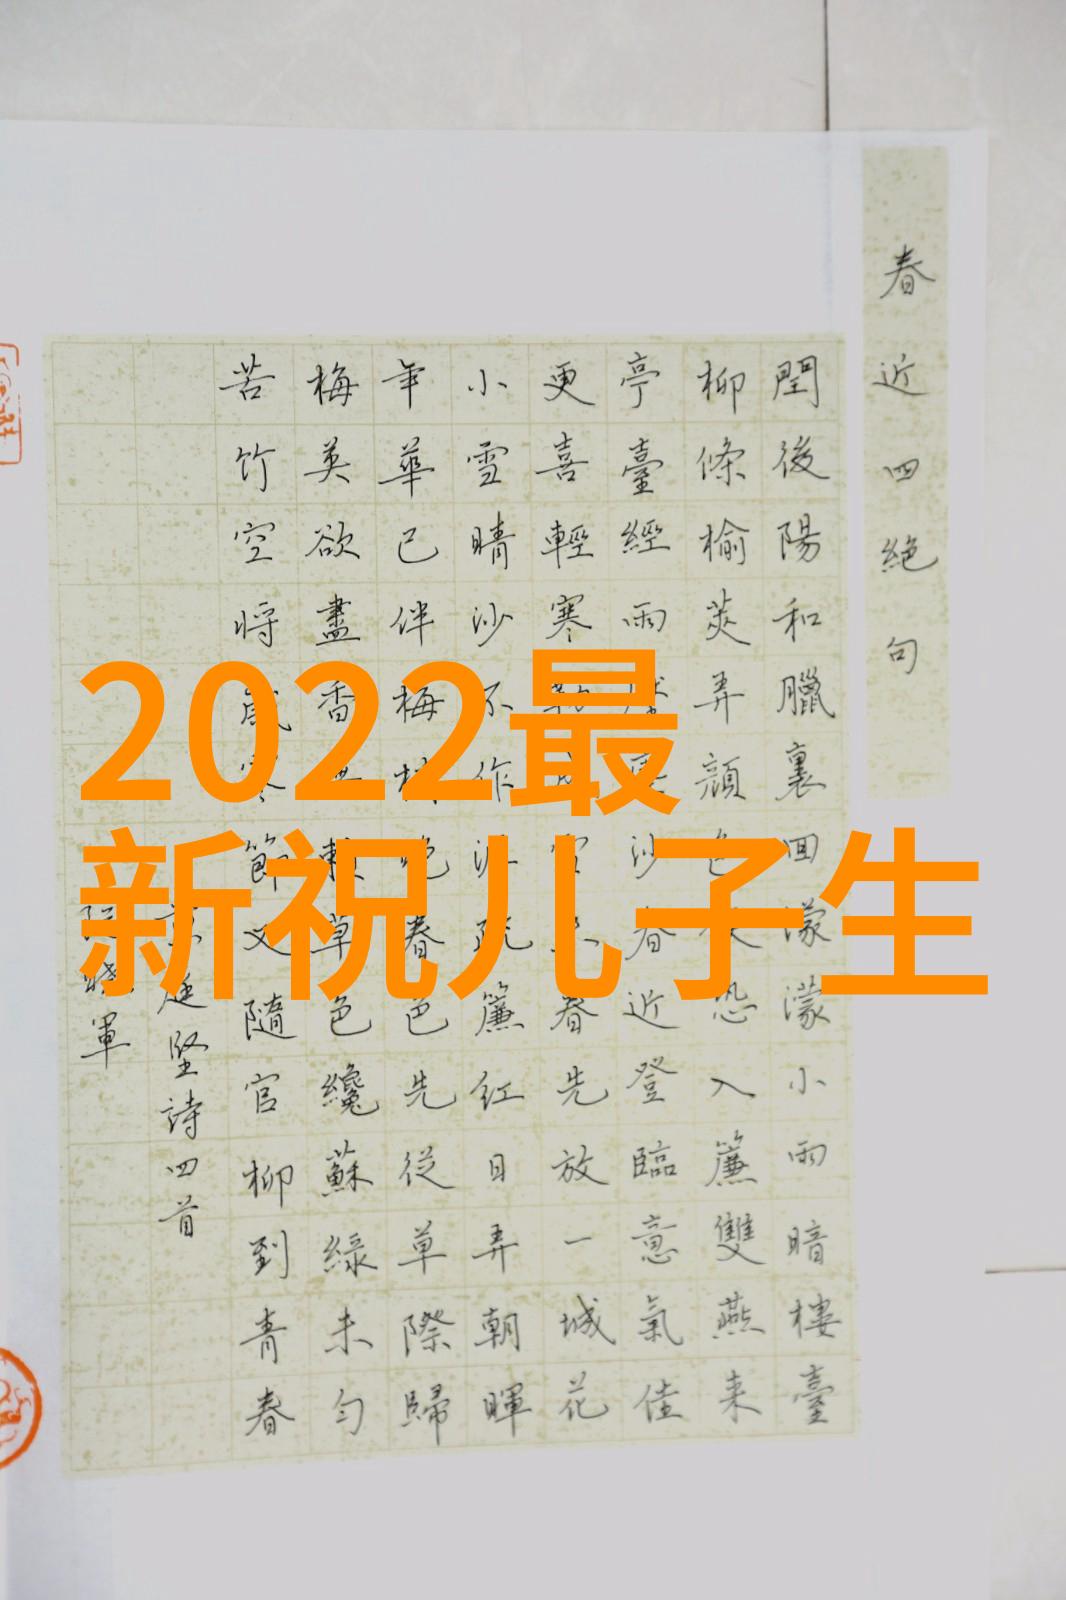 春近四絕句
閏後陽和臘裏回濛濛小雨暗樓臺
柳條榆莢弄顔色便恐入簾雙燕来
亭臺經雨壓塵沙春近登臨意氣佳
更喜輕寒勒成雪未春先放一城花
小雪晴沙不作泥疏簾紅日弄朝暉
年華已伴梅梢晚春色先從草際歸
梅英欲盡香無賴草色纔蘇綠未勻
苦竹空將歲寒節又隨官柳到青春
黄庭堅詩四首
軍
2022最
新祝儿子生